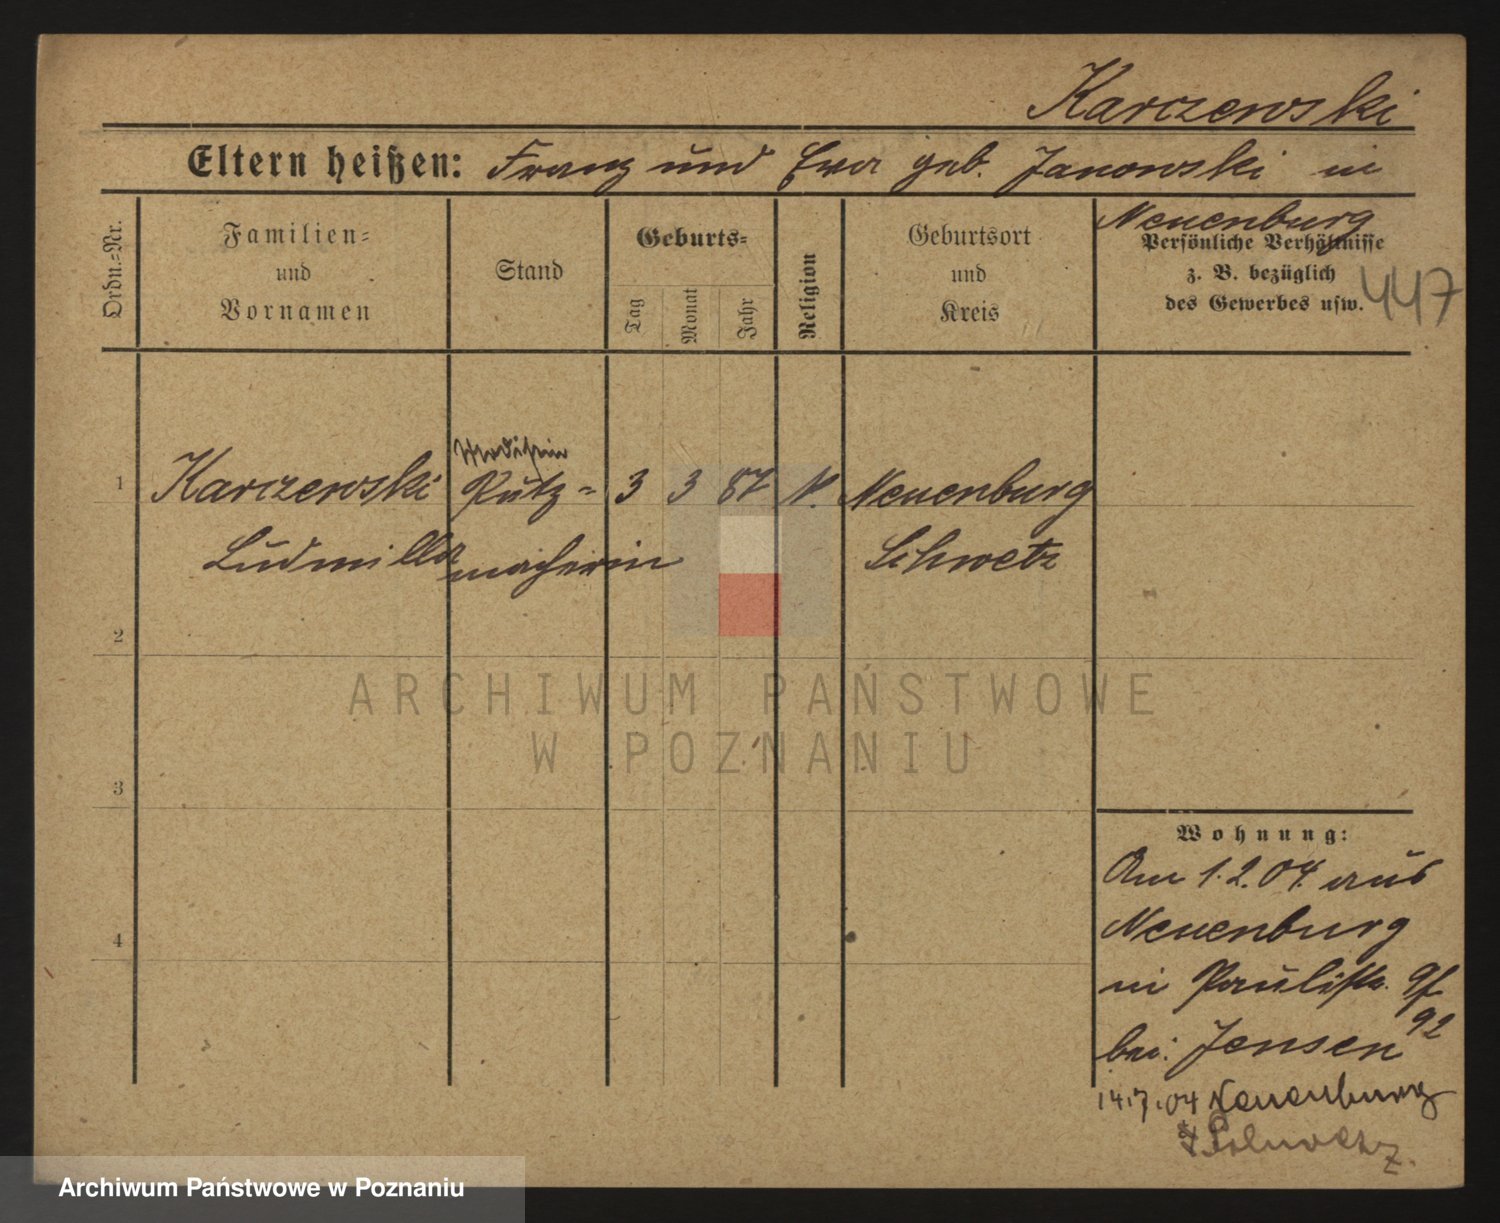 Karczewski
Eltern heißen: Franz und Ewa geb. Janowski in
Neuenburg
Ordn.-Nr.
Familien-
und
Vornamen
Stand
Geburts-
Tag
Monat
Jahr
Religion
Geburtsort
und
Kreis
Persönliche Verhältnisse
z. B. bezüglich
des Gewerbes usw.
447
Modistin
1 Karczewski Putz- 3 3 87 k. Neuenburg
Ludmilla macherin Schwetz
2
3
4
ARCHIWUM PAŃSTWOWE
W POZNANIU
Wohnung:
Am 1.2.04. aus
Neuenburg
in Paulistr. 9f
92
bei: Jensen
14.7.04 Neuenburg
Schwetz.
Archiwum Państwowe w Poznaniu